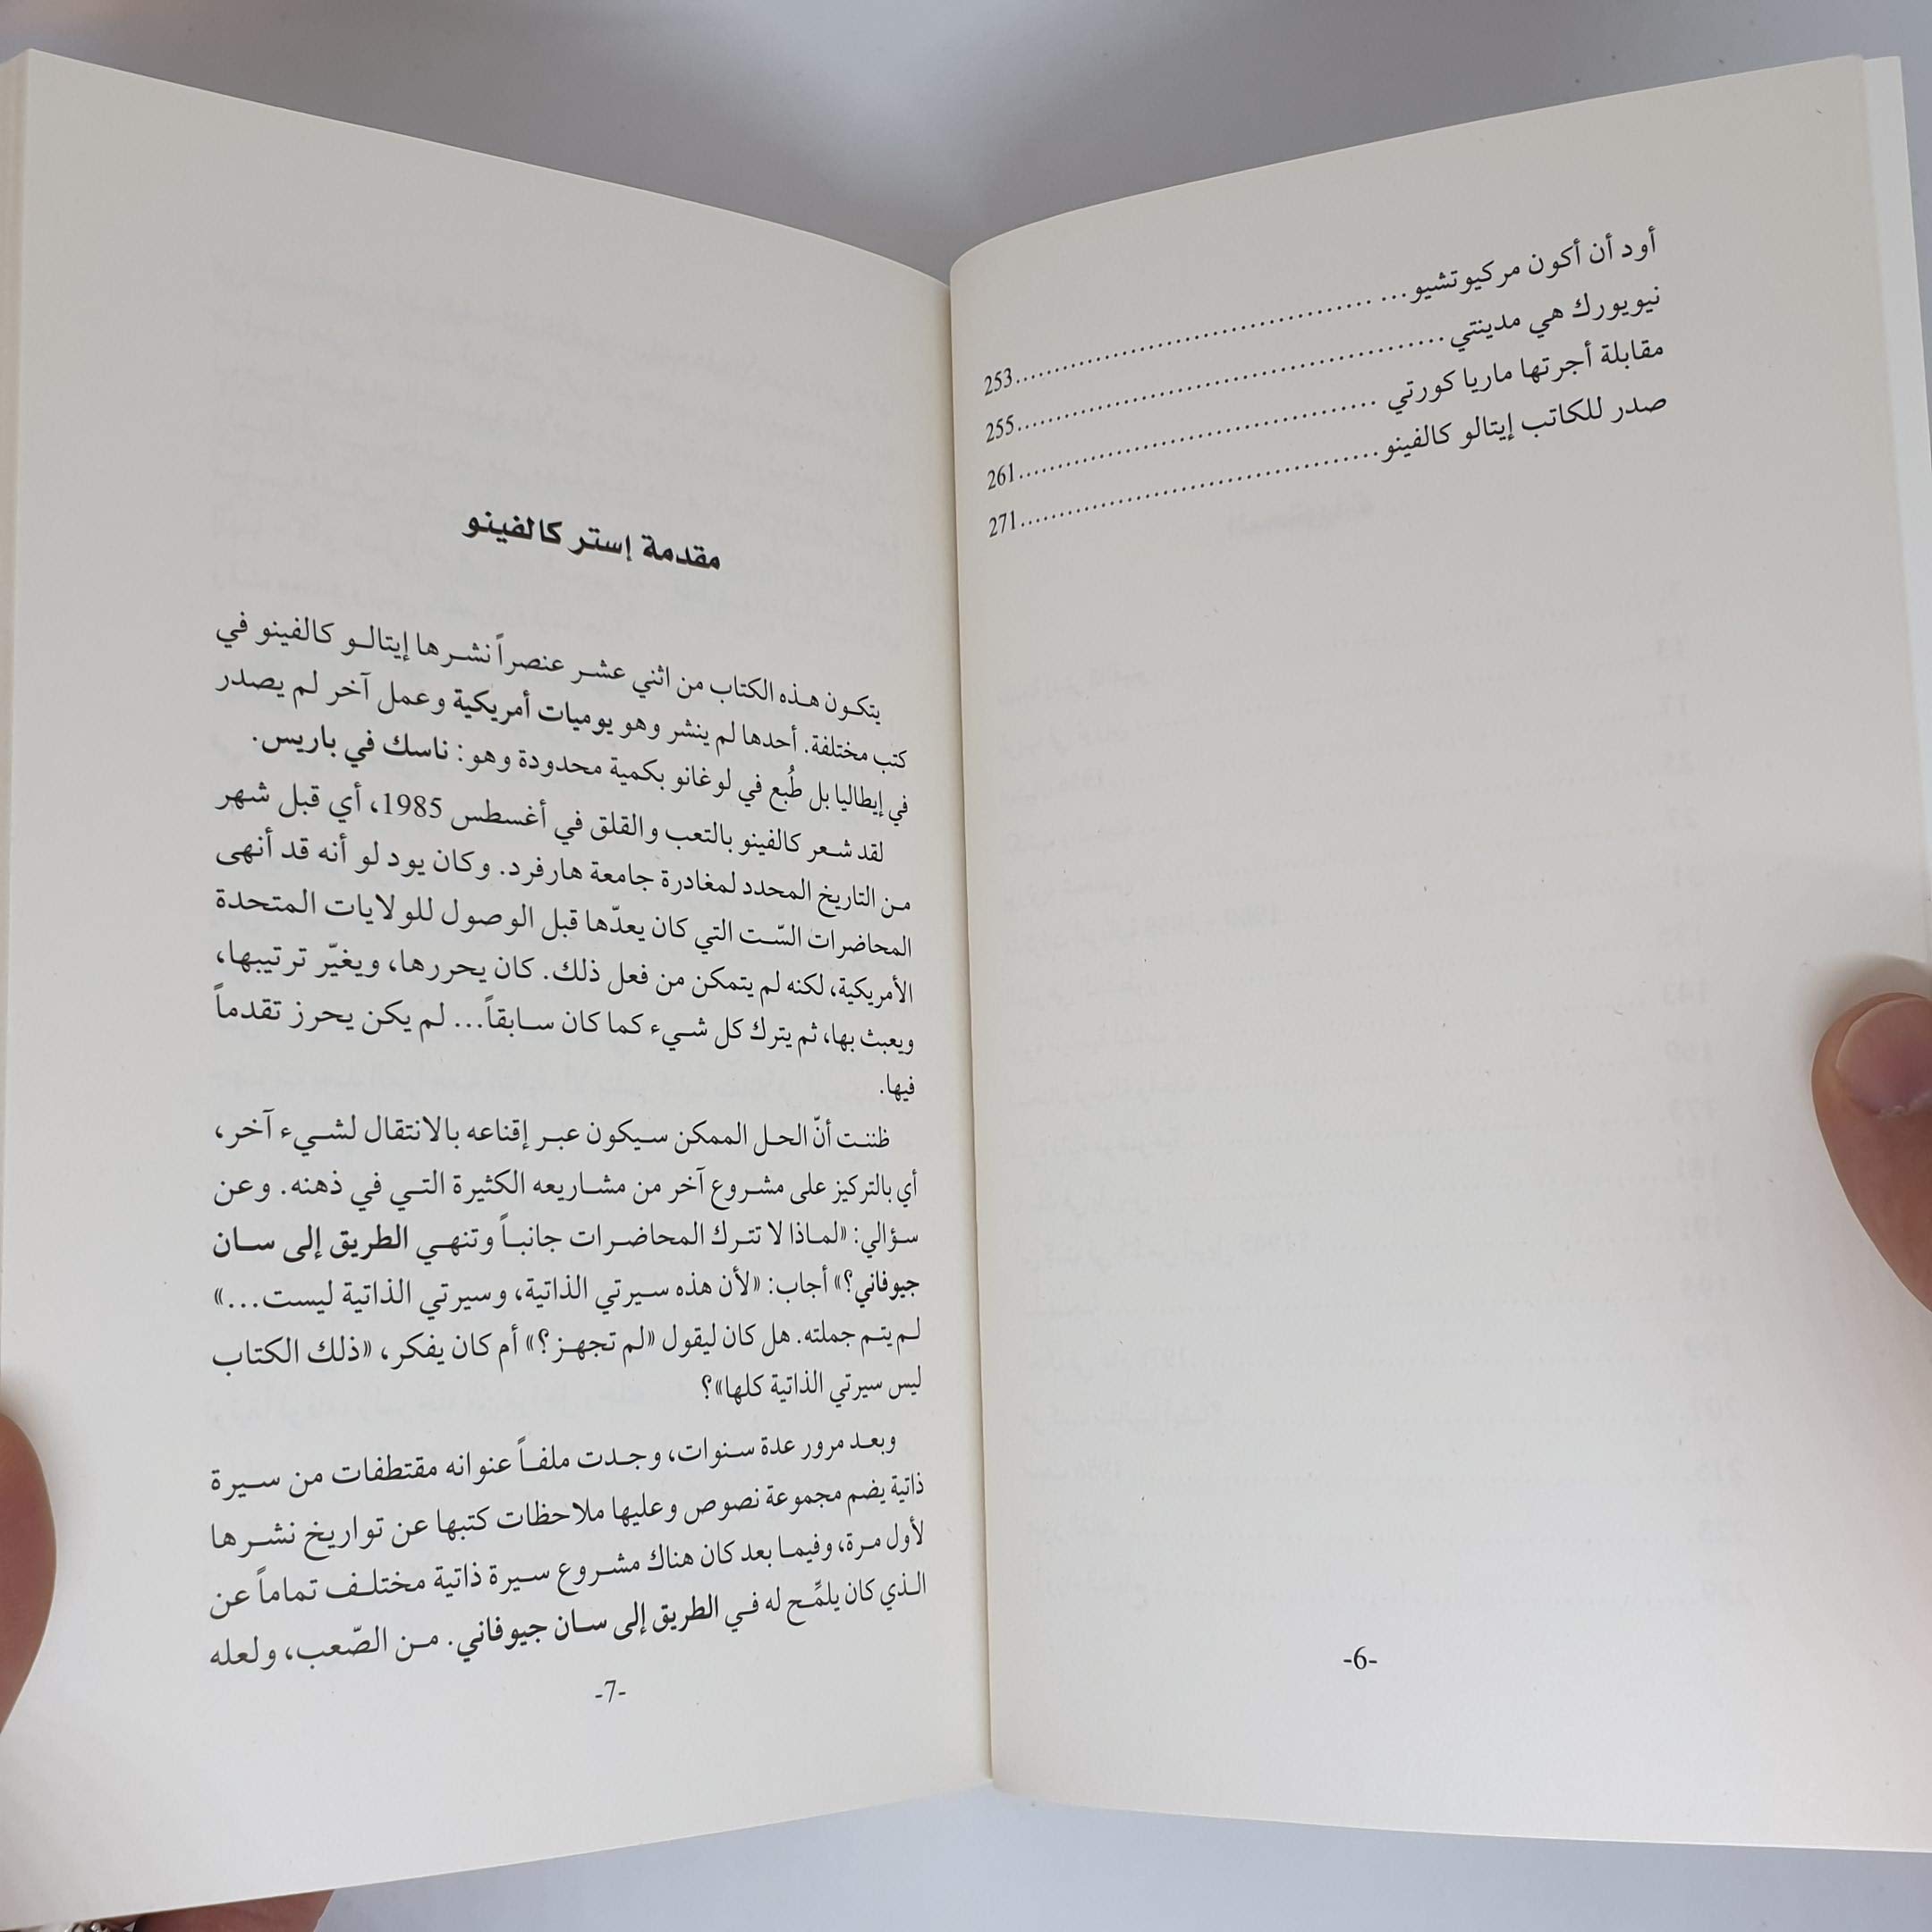 أود أن أكون مركيوتشيو... ........................................253
نيويورك هي مدينتي........................................255
مقابلة أجرتها ماريا كورتي ........................................261
صدر للكاتب إيتالو كالفينو........................................271
-6-
مقدمة إستر كالفينو
يتكون هذه الكتاب من اثني عشر عنصراً نشرها إيتالو كالفينو في
كتب مختلفة. أحدها لم ينشر وهو يوميات أمريكية وعمل آخر لم يصدر
في إيطاليا بل طُبع في لوغانو بكمية محدودة وهو: ناسك في باريس.
لقد شعر كالفينو بالتعب والقلق في أغسطس 1985، أي قبل شهر
من التاريخ المحدد لمغادرة جامعة هارفرد. وكان يود لو أنه قد أنهى
المحاضرات السّت التي كان يعدّها قبل الوصول للولايات المتحدة
الأمريكية، لكنه لم يتمكن من فعل ذلك. كان يحررها، ويغيّر ترتيبها،
ويعبث بها، ثم يترك كل شيء كما كان سابقاً... لم يكن يحرز تقدماً
فيها.
ظننت أنّ الحل الممكن سيكون عبر إقناعه بالانتقال لشيء آخر،
أي بالتركيز على مشروع آخر من مشاريعه الكثيرة التي في ذهنه. وعن
سؤالي: «لماذا لا تترك المحاضرات جانباً وتنهي الطريق إلى سان
جيوفاني؟» أجاب: «لأن هذه سيرتي الذاتية، وسيرتي الذاتية ليست...»
لم يتم جملته. هل كان ليقول «لم تجهز؟» أم كان يفكر، «ذلك الكتاب
ليس سيرتي الذاتية كلها»؟
وبعد مرور عدة سنوات، وجدت ملفاً عنوانه مقتطفات من سيرة
ذاتية يضم مجموعة نصوص وعليها ملاحظات كتبها عن تواريخ نشرها
لأول مرة، وفيما بعد كان هناك مشروع سيرة ذاتية مختلف تماماً عن
الذي كان يلمِّح له في الطريق إلى سان جيوفاني. من الصّعب، ولعله
-7-